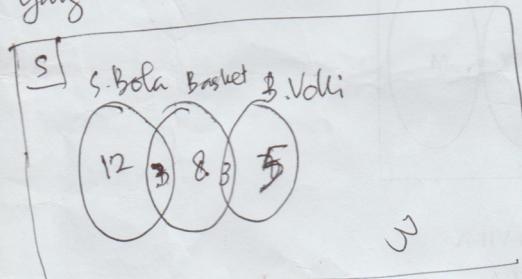 yang
S
S. Bola Basket B. Volli
12 3 8 3 5
3